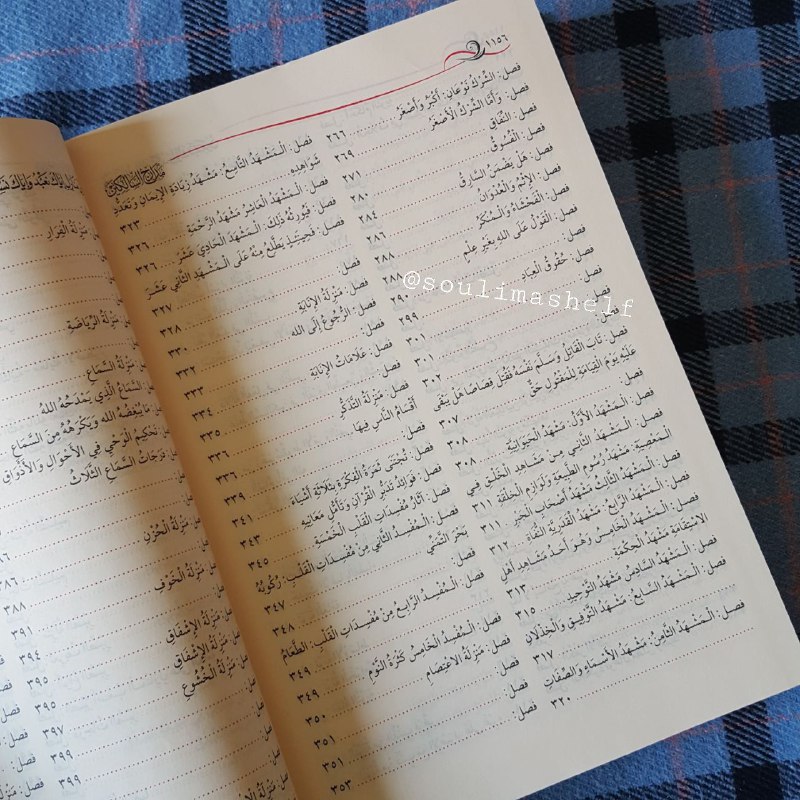 ١١٥٦
مدارج السالكين
فصل: الشِّرْكُ نَوْعَانِ: أَكْبَرُ وَأَصْغَرُ
فصل: وَأَمَّا الشِّرْكُ الْأَصْغَرُ ٢٦٦
فصل: النِّفَاقِ ٢٦٩
فصل: الْفُسُوقُ ٢٧١
فصل: هَلْ يَضْمَنُ السَّارِقُ
فصل: الْإِثْمُ وَالْعُدْوَانُ ٢٨٤
فصل: الْفَحْشَاءُ وَالْمُنْكَرُ ٢٨٦
فصل: الْقَوْلُ عَلَى اللهِ بِغَيْرِ عِلْمٍ ٢٨٨
فصل: حُقُوقُ الْعِبَادِ ٢٨٨
فصل: ٢٩٠
فصل: ٢٩٩
فصل: ٣٠١
٣٠١
فصل: تَابَ الْقَاتِلُ وَسَلَّمَ نَفْسَهُ فَقُتِلَ قِصَاصًا هَلْ يَبْقَى
عَلَيْهِ يَوْمَ الْقِيَامَةِ لِلْمَقْتُولِ حَقٌّ ٣٠٢
فصل: ٣٠٧
فصل: الْمَشْهَدُ الْأَوَّلُ: مَشْهَدُ الْحَيَوَانِيَّةِ ٣٠٨
فصل: الْمَشْهَدُ الثَّانِي مِنْ مَشَاهِدِ الْخَلْقِ فِي
الْمَعْصِيَةِ: مَشْهَدُ رُسُومِ الطَّبِيعَةِ وَلَوَازِمِ الْخِلْقَةِ ٣١١
فصل: الْمَشْهَدُ الثَّالِثُ مَشْهَدُ أَصْحَابِ الْجَبْرِ ٣١١
فصل: الْمَشْهَدُ الرَّابِعُ: مَشْهَدُ الْقَدَرِيَّةِ النُّفَاةِ ٣١٢
فصل: الْمَشْهَدُ الْخَامِسُ وَهُوَ أَحَدُ مَشَاهِدِ أَهْلِ
الِاسْتِقَامَةِ مَشْهَدُ الْحِكْمَةِ ٣١٣
فصل: الْمَشْهَدُ السَّادِسُ مَشْهَدُ التَّوْحِيدِ ٣١٥
فصل: الْمَشْهَدُ السَّابِعُ: مَشْهَدُ التَّوْفِيقِ وَالْخِذْلَانِ ٣١٧
فصل: الْمَشْهَدُ الثَّامِنُ: مَشْهَدُ الْأَسْمَاءِ وَالصِّفَاتِ ٣٢٠
فصل: الْمَشْهَدُ التَّاسِعُ: مَشْهَدُ زِيَادَةِ الْإِيمَانِ وَتَعَدُّدِ
شَوَاهِدِهِ ٣٢٣
فصل: الْمَشْهَدُ الْعَاشِرُ مَشْهَدُ الرَّحْمَةِ ٣٢٦
فصل: فَيُورِثُهُ ذَلِكَ: الْمَشْهَدَ الْحَادِيَ عَشَرَ ٣٢٦
فصل: فَحِينَئِذٍ يَطَّلِعُ مِنْهُ عَلَى الْمَشْهَدِ الثَّانِي عَشَرَ
٣٢٧
فصل: ٣٢٨
فصل: مَنْزِلَةُ الْإِنَابَةِ ٣٣٠
فصل: الرُّجُوعُ إِلَى اللهِ ٣٣٢
فصل: ٣٣٣
فصل: عَلَامَاتُ الْإِنَابَةِ ٣٣٤
فصل: مَنْزِلَةُ التَّذَكُّرِ ٣٣٥
أَقْسَامُ النَّاسِ فِيهَا ٣٣٦
فصل: ٣٣٦
فصل: تُجْتَنَى ثَمَرَةُ الْفِكْرَةِ بِثَلَاثَةِ أَشْيَاءَ ٣٣٩
فصل: فَوَائِدُ تَدَبُّرِ الْقُرْآنِ وَتَأَمُّلِ مَعَانِيهِ ٣٤١
فصل: آثَارُ مُفْسِدَاتِ الْقَلْبِ الْخَمْسَةِ ٣٤٣
فصل: الْمُفْسِدُ الثَّانِي مِنْ مُفْسِدَاتِ الْقَلْبِ: رُكُوبُهُ
بَحْرَ التَّمَنِّي ٣٤٥
فصل: ٣٤٧
فصل: الْمُفْسِدُ الرَّابِعُ مِنْ مُفْسِدَاتِ الْقَلْبِ: الطَّعَامُ
٣٤٨
فصل: الْمُفْسِدُ الْخَامِسُ كَثْرَةُ النَّوْمِ ٣٤٩
فصل: مَنْزِلَةُ الِاعْتِصَامِ ٣٤٩
فصل: ٣٥٠
فصل: ٣٥١
فصل: ٣٥١
٣٥٣
مَنْزِلَةُ الْفِرَارِ
مَنْزِلَةُ الرِّيَاضَةِ
مَنْزِلَةُ السَّمَاعِ
السَّمَاعُ الَّذِي يَمْدَحُهُ اللهُ
مَا يُبْغِضُهُ اللهُ وَيَكْرَهُهُ مِنَ السَّمَاعِ
تَحْكِيمُ الْوَحْيِ فِي الْأَحْوَالِ وَالْأَذْوَاقِ
دَرَجَاتُ السَّمَاعِ الثَّلَاثُ
مَنْزِلَةُ الْحُزْنِ
مَنْزِلَةُ الْخَوْفِ ٣٨٨
٣٩١
مَنْزِلَةُ الْإِشْفَاقِ ٣٩٤
مَنْزِلَةُ الْإِشْفَاقِ ٣٩٥
مَنْزِلَةُ الْخُشُوعِ ٣٩٥
٣٩٧
٣٩٩
٣٩٩
@soulimashelf